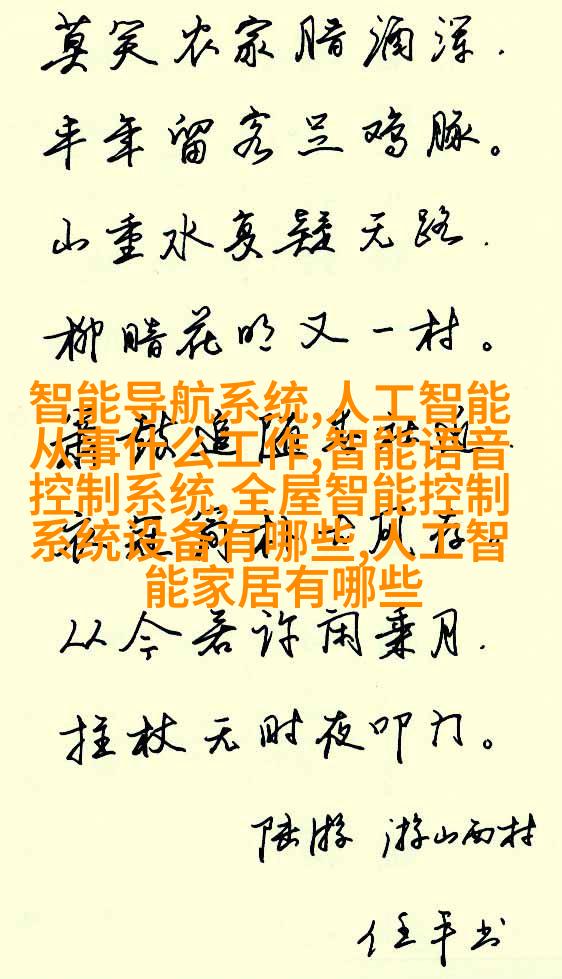 莫笑农家腊酒浑.
丰年留客足鸡豚。
山重水复疑无路.
柳暗花明又一村。
智能导航系统,人工智能
追随
从事什么工作,智能语音
控制系统,全屋智能控制
系统设备有哪些,人工智
能家居有哪些
从今若许闲乘月.
拄杖无时夜叩门。
陆游 游山西村
任平书